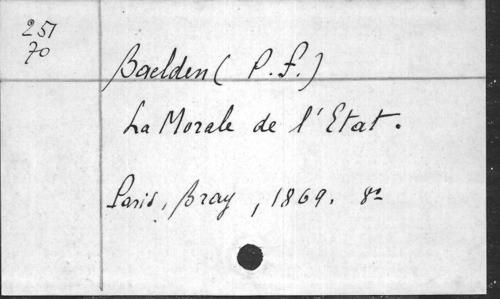 251
70
Baelden ( P. F. )
La Morale de l'Etat.
Paris, Bray, 1869. 8º